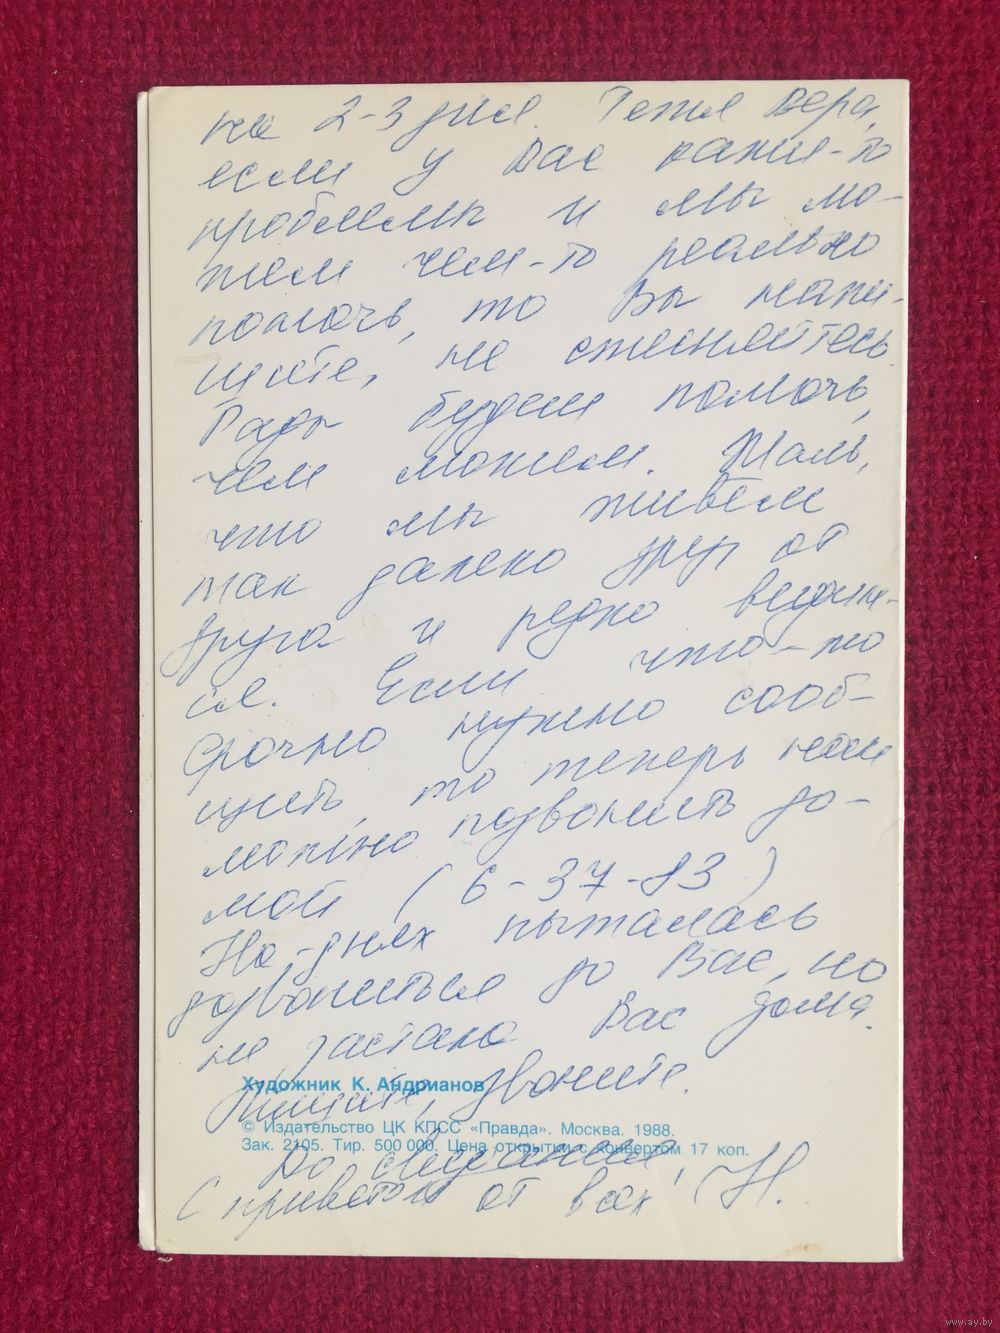 на 2-3 дня. Тетя Вера,
если у Вас какие-то
проблемы и мы мо-
жем чем-то реально
помочь, то Вы напи-
шите, не стесняйтесь.
Рады будем помочь,
чем можем. Жаль,
что мы живём
так далеко друг от
друга и редко видим-
ся. Если что-то
срочно нужно сооб-
щить, то теперь нам
можно позвонить до-
мой (6-37-83)
На-днях пыталась
дозвониться до Вас, но
не застала Вас дома.
Художник К. Андрианов
Пишите, звоните.
© Издательство ЦК КПСС «Правда». Москва. 1988.
Зак. 2105. Тир. 500 000. Цена открытки с конвертом 17 коп.
До свидания,
С приветом от всех Н.
www.ay.by